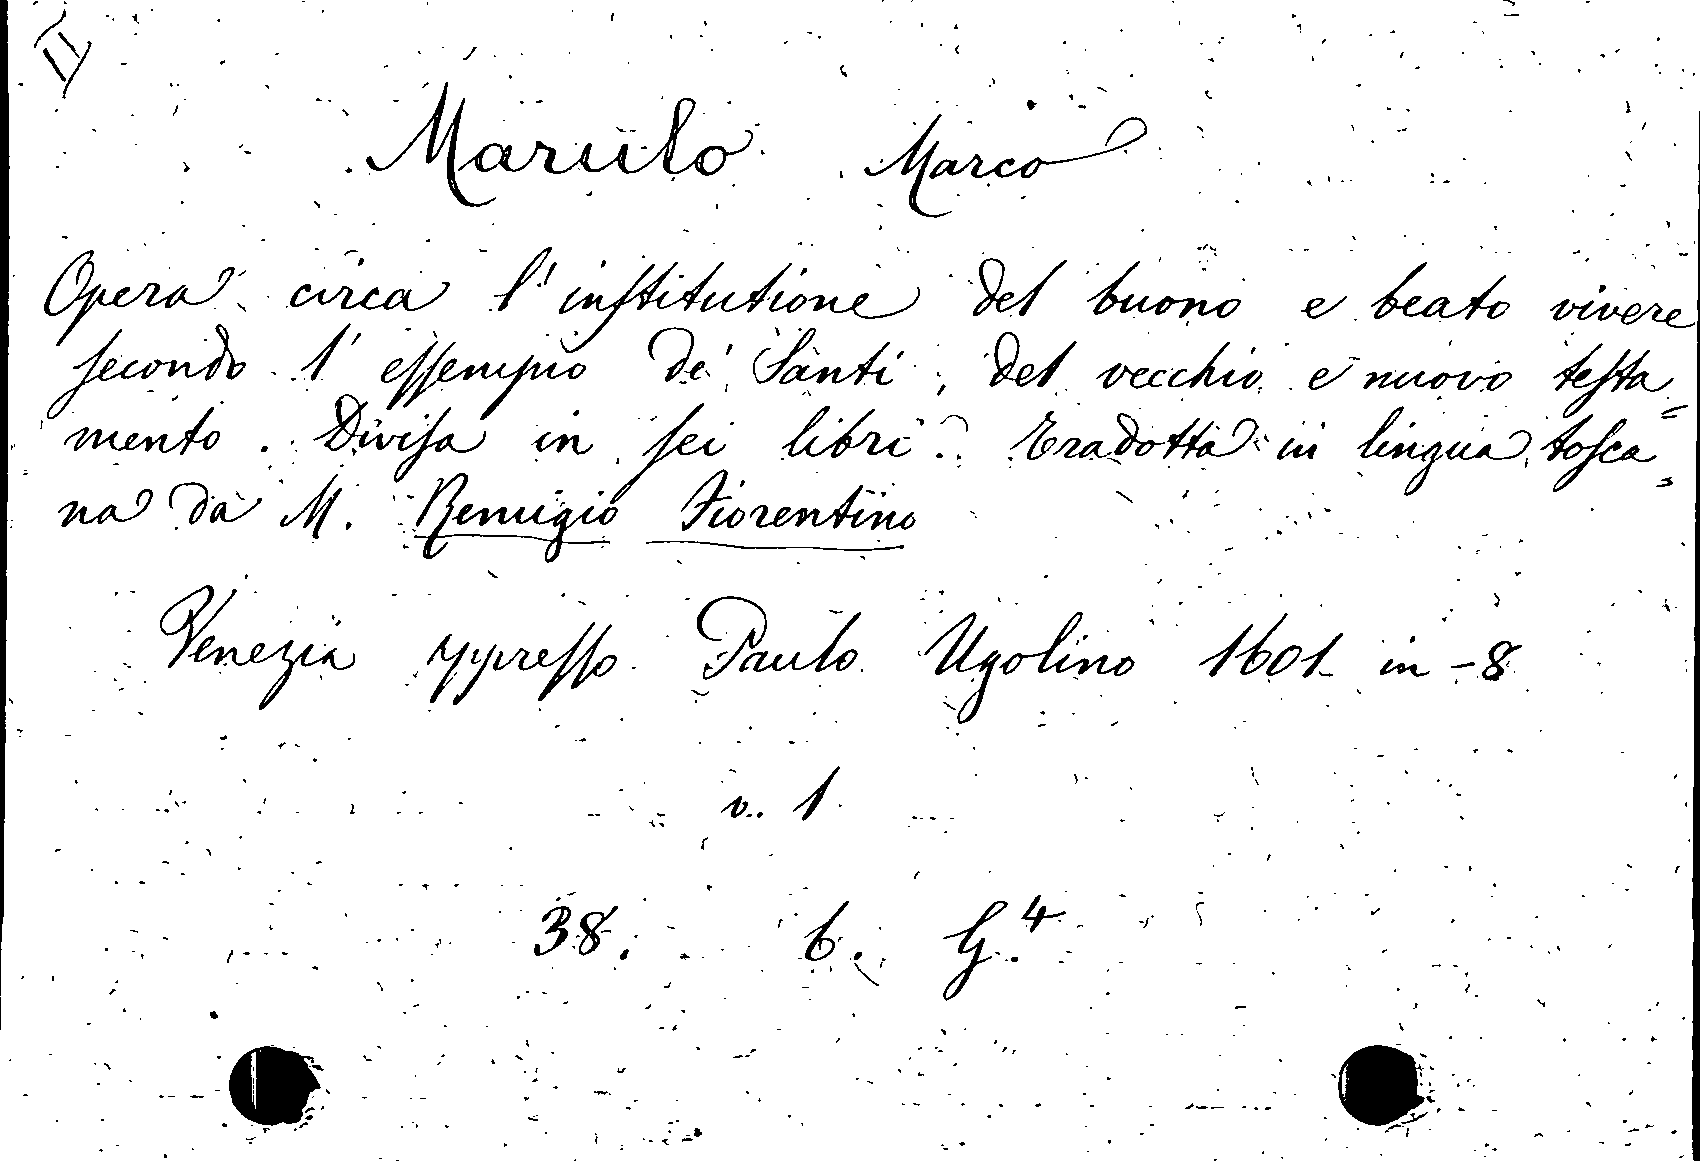 II
Marulo Marco
Opera circa l'institutione del buono e beato vivere
secondo l'essempio de' Santi, del vecchio e nuovo testa=
mento. Divisa in sei libri. Tradotta in lingua tosca=
na da M. Remigio Fiorentino
Venezia appresso Paulo Ugolino 1601 in-8
v. 1
38. 6. G.4